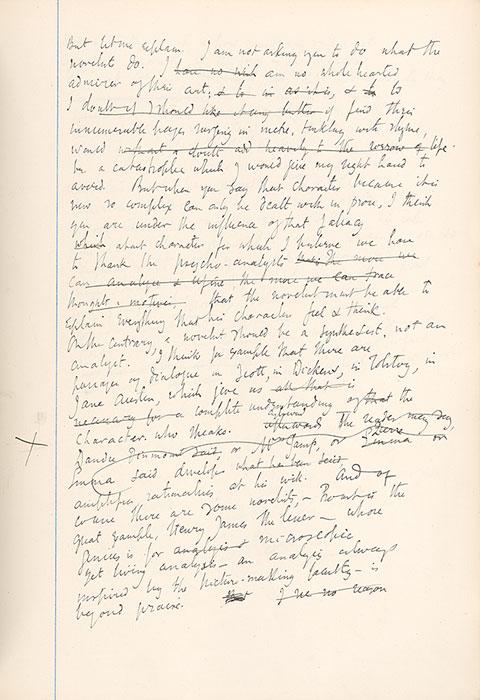 But let me explain. I am not asking you to do what the
novelists do. I have no wish am no whole hearted
admirer of their art; & to as it is, & to
I doubt if I should like it any better if find their
innumerable pages surging in metre, tinkling with rhyme,
would without a doubt add heavily to the sorrow of life.
be a catastrophe which I would give my right hand to
avoid. But when you say that character because it is
now so complex can only be dealt with in prose, I think
you are under the influence of that fallacy
which about character for which I believe we have
to thank the psycho-analysts that the more we
can analyse & define, the more we can trace
thoughts & motives that the novelist must be able to
explain everything that his characters feel & think.
On the contrary, a novelist should be a synthesist, not an
analyst. I think for example that there are
passages of dialogue in Scott, in Dickens, in Tolstoy, in
Jane Austen, which give us all that is
necessary for a complete understanding of that the
character who speaks. afterwards The reader may say,
Dandie Dinmont said, or Mrs Gamp, or Pierre Emma or
Emma said develops what he has said
amplifies ratiocinates at his will. And of
course there are some novelists, – Proust is the
great example, Henry James the lesser – whose
genius is for analysis & microscopic
yet living analysis – an analysis always
inspired by the picture-making faculty – is
beyond praise. But I see no reason